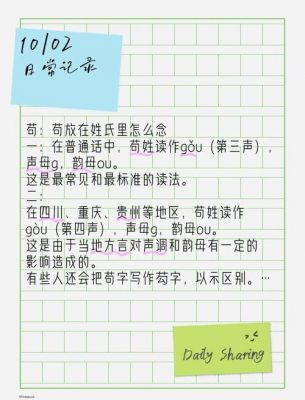 10/02
日常记录
苟：苟放在姓氏里怎么念
一：在普通话中，苟姓读作gǒu（第三声），
声母g，韵母ou。
这是最常见和最标准的读法。
二：
在四川、重庆、贵州等地区，苟姓读作
gòu（第四声），声母g，韵母ou。
这是由于当地方言对声调和韵母有一定的
影响造成的。
有些人还会把苟字写作芶字，以示区别。…
Daily Sharing